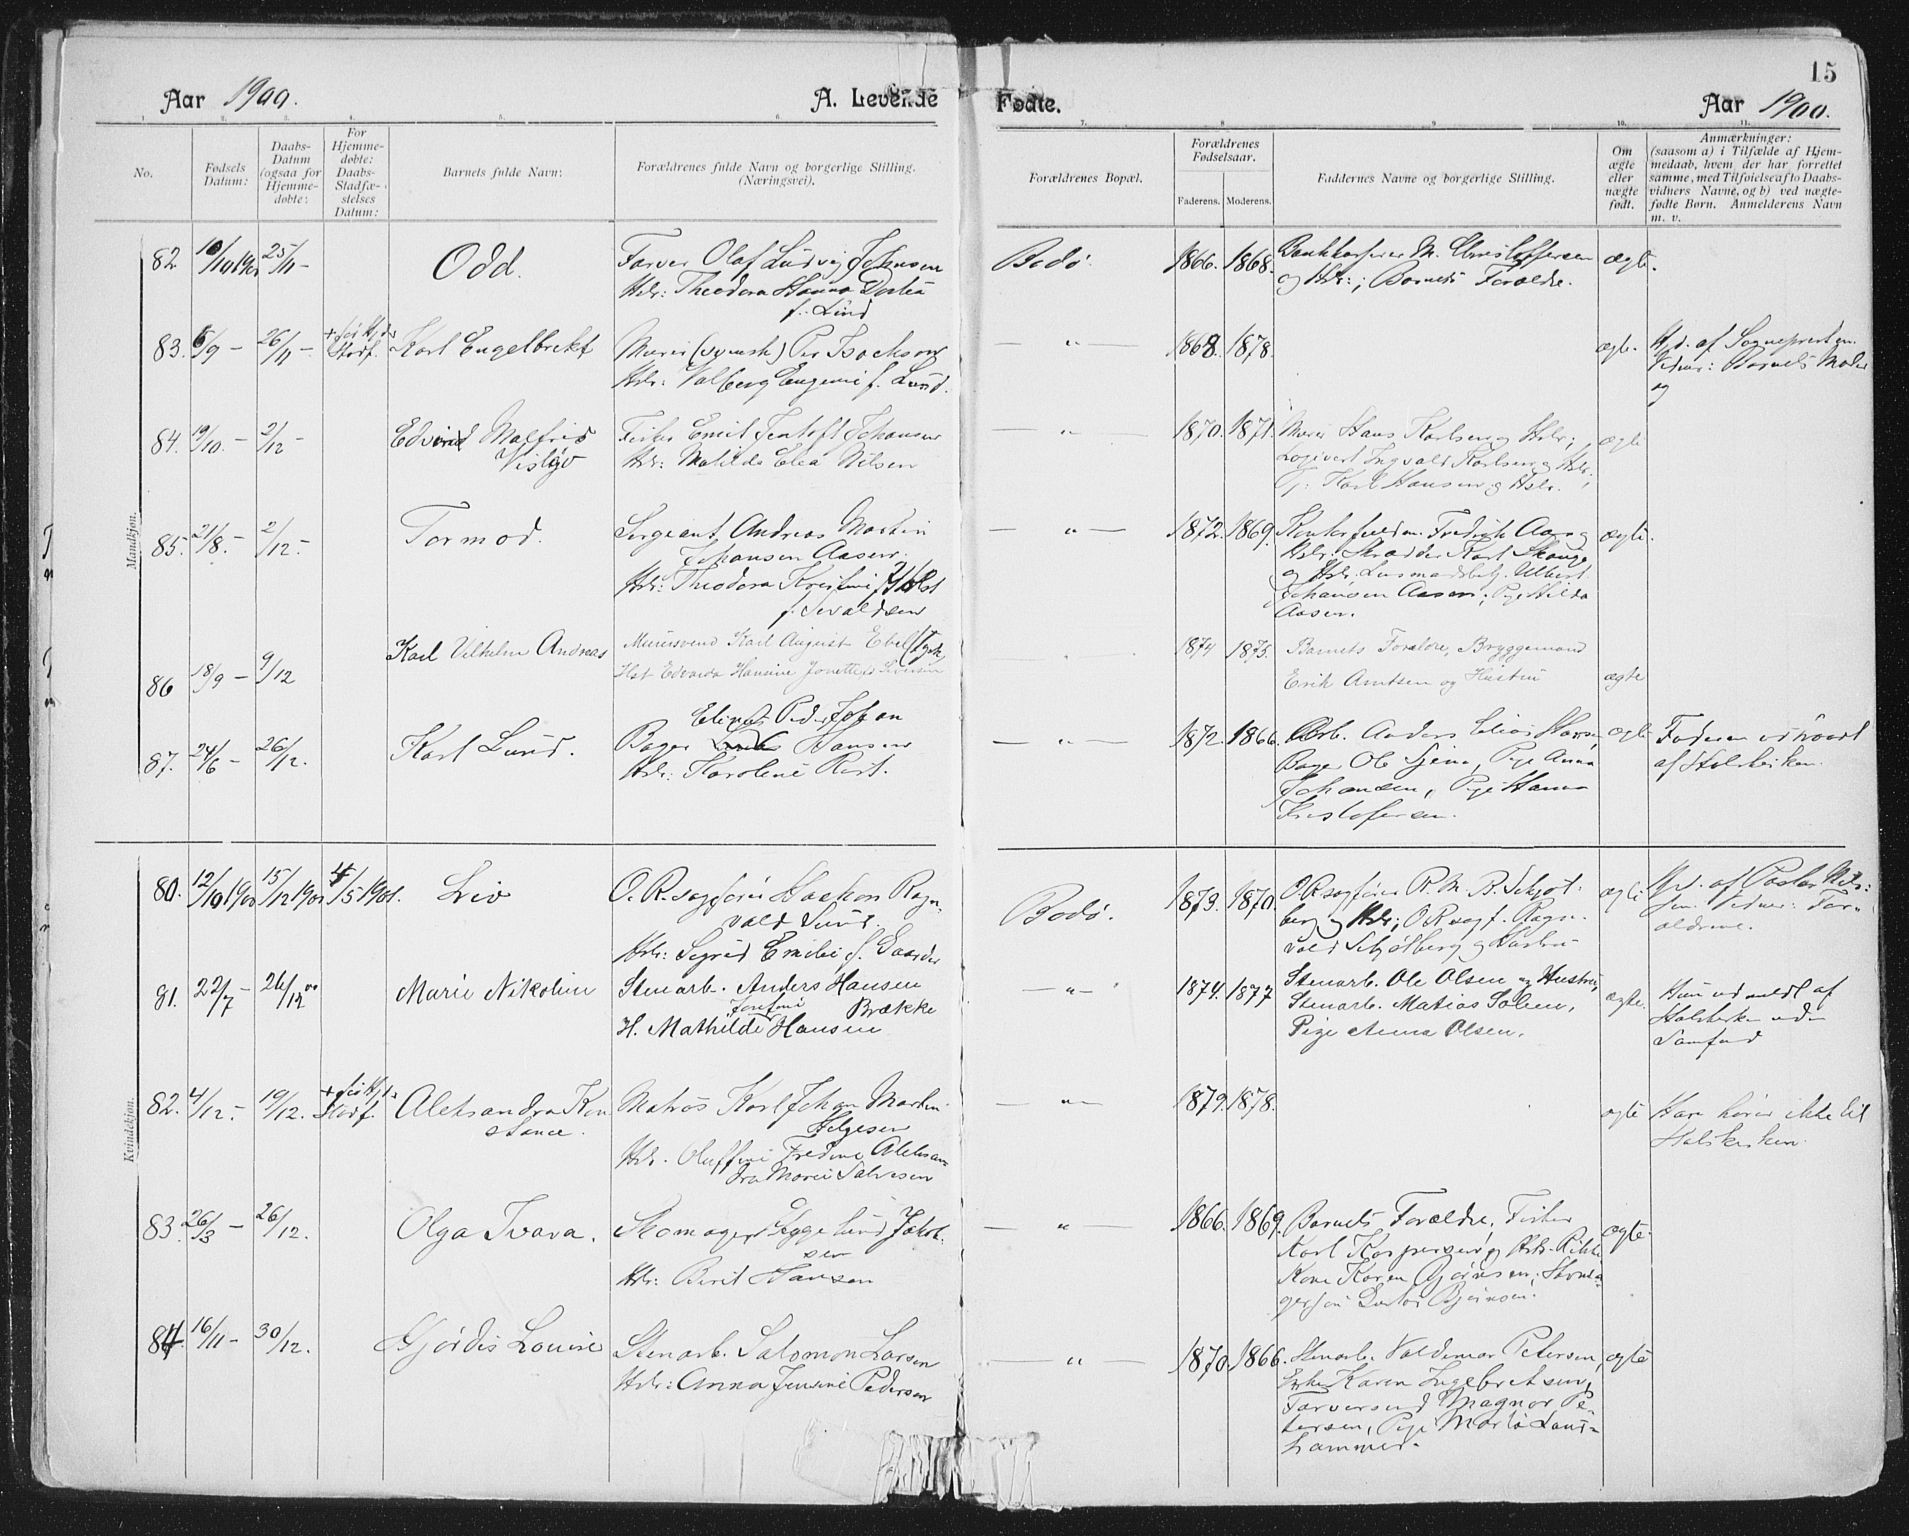 15
Aar 1900. A. Levende Fødte. Aar 1900.
1. 2. 3. 4. 5. 6. 7. 8. 9. 10. 11.
No.
Fødsels Datum:
Daabs-
Datum
(ogsaa for
Hjemme-
døbte:
For
Hjemme-
døbte:
Daabs-
Stadfæ-
stelses
Datum:
Barnets fulde Navn:
Forældrenes fulde Navn og borgerlige Stilling.
(Næringsvei).
Forældrenes Bopæl.
Forældrenes
Fødselsaar.
Faderens. Moderens.
Faddernes Navne og borgerlige Stilling.
Om
ægte
eller
nægte
født.
Anmærkninger:
(saasom a) i Tilfælde af Hjem-
medaab, hvem der har forrettet
samme, med Tilføielse af to Daabs-
vidners Navne, og b) ved nægte-
fødte Børn. Anmelderens Navn
m. v.
Mandkjøn.
82 10/10 1900 25/11 - Odd. Farver Olaf Ludvig Johansen
Hstr: Theodora Hanna Dortea
f. Lund
Bodø. 1866. 1868. Bankkasserer M. Christoffersen
og Hstr:; Barnets Forældre. ægte.
83. 6/9 - 26/11 - + før Hj.ds
Stadf. Karl Engelbrekt Murer (svensk) Per Isackson
Hstr: Valborg Eugenie f. Lund.
— " — 1868. 1878. ægte. Hjd. af Sognepresten.
Vidner: Barnets Moder
og
84. 19/10 - 2/12 - Edvind Malfrid
Visløv Fisker Emil Jentoft Johansen
Hstr: Matilde Elea Nilsen
— " — 1870. 1871. Murer Hans Karlsen og Hstr;
Ingvald Karlsen og Hstr.;
Karl Hansen og Hstr. ægte
85. 21/8. - 2/12. - Tormod. Sergeant Andreas Martin
Johansen Aasen.
Hstr: Theodora Kristine
f. Sivaldsen
— " — 1872. 1869. Fredrik Aas og
Hstr. Skrædder Karl Skauge
og Hstr. Albert
Johansen Aasen; Pige Hilda
Aasen. ægte.
86 18/9 - 9/12 Karl Vilhelm Andreas Murersvend Karl August Ebel (tysk)
Hst Edvarda Hansine Jonette f. Sivertsen
1874 1875. Barnets Forældre, Bryggemand
Erik Arntsen og Hustru ægte
87. 24/6 - 26/12. Karl Lund. Elinus Peder Johan
Bager Hansen
Hstr: Karoline Rist.
— " — 1872. 1866. Arb. Anders Elias
Bager Ole Pige Anna
Johansen, Pige Hanna
Kristofersen. ægte Faderen udtraadt
af Statskirken.
Kvindekjøn.
80. 12/10 1900 15/12 1900 4/5 1901. Liv O.R.sagfører Haakon Ragn-
vald Sund.
Hstr: Sigrid Emilie f. Gaarder
Bodø. 1873. 1870. O.R.sagfører R. M. B. Schjøt-
berg og Hstr; O.R.sagf. Ragn-
vald Schjøtberg og Hustru ægte Hjd. af Pastor
Vidner: For-
ældrene.
81. 22/7 - 26/12 00 Marie Nikoline Stenarb. Anders Hansen
Brække
Josefine
H. Mathilde Hansen
— " — 1874. 1877 Stenarb. Ole Olsen og Hustru,
Stenarb. Matias Solem,
Pige Anna Olsen. ægte. Hun udmeldt af
Statskirken uden
Samfund
82. 4/12. - 19/12. + før Hj.ds
Stadf. Aleksandra Kon
stance. Matros Karl Johan Martin
Helgesen
Hstr. Oluffine Fredine Aleksan-
dra Marie Salvesen
— " — 1879. 1878. ægte Han hører ikke til
Statskirken.
83. 26/3 - 26/12. Olga Tvara. Skomager Hyggelund Jakob-
sen
Hstr: Berit Hansen
— " — 1866. 1869. Barnets Forældre, Fisker
Karl Kaspersen og Hstr. Rikke
Kone Karen Bjørnsen;
Bjørnsen. ægte.
84. 16/11 - 30/12. Hjørdis Louise Stenarb. Salomon Larsen
Hstr: Anna Jensine Pedersen
— " — 1870. 1866. Stenarb. Valdemar Petersen,
Enke Karen Ingebretsen,
Farversvend Magnor Pe-
tersen, Pige Marta Land-
hammer. ægte